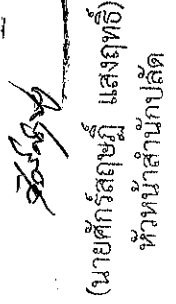 (นายศักร์สฤษฎิ์ แสงฤทธิ์)
หัวหน้าสำนักปลัด